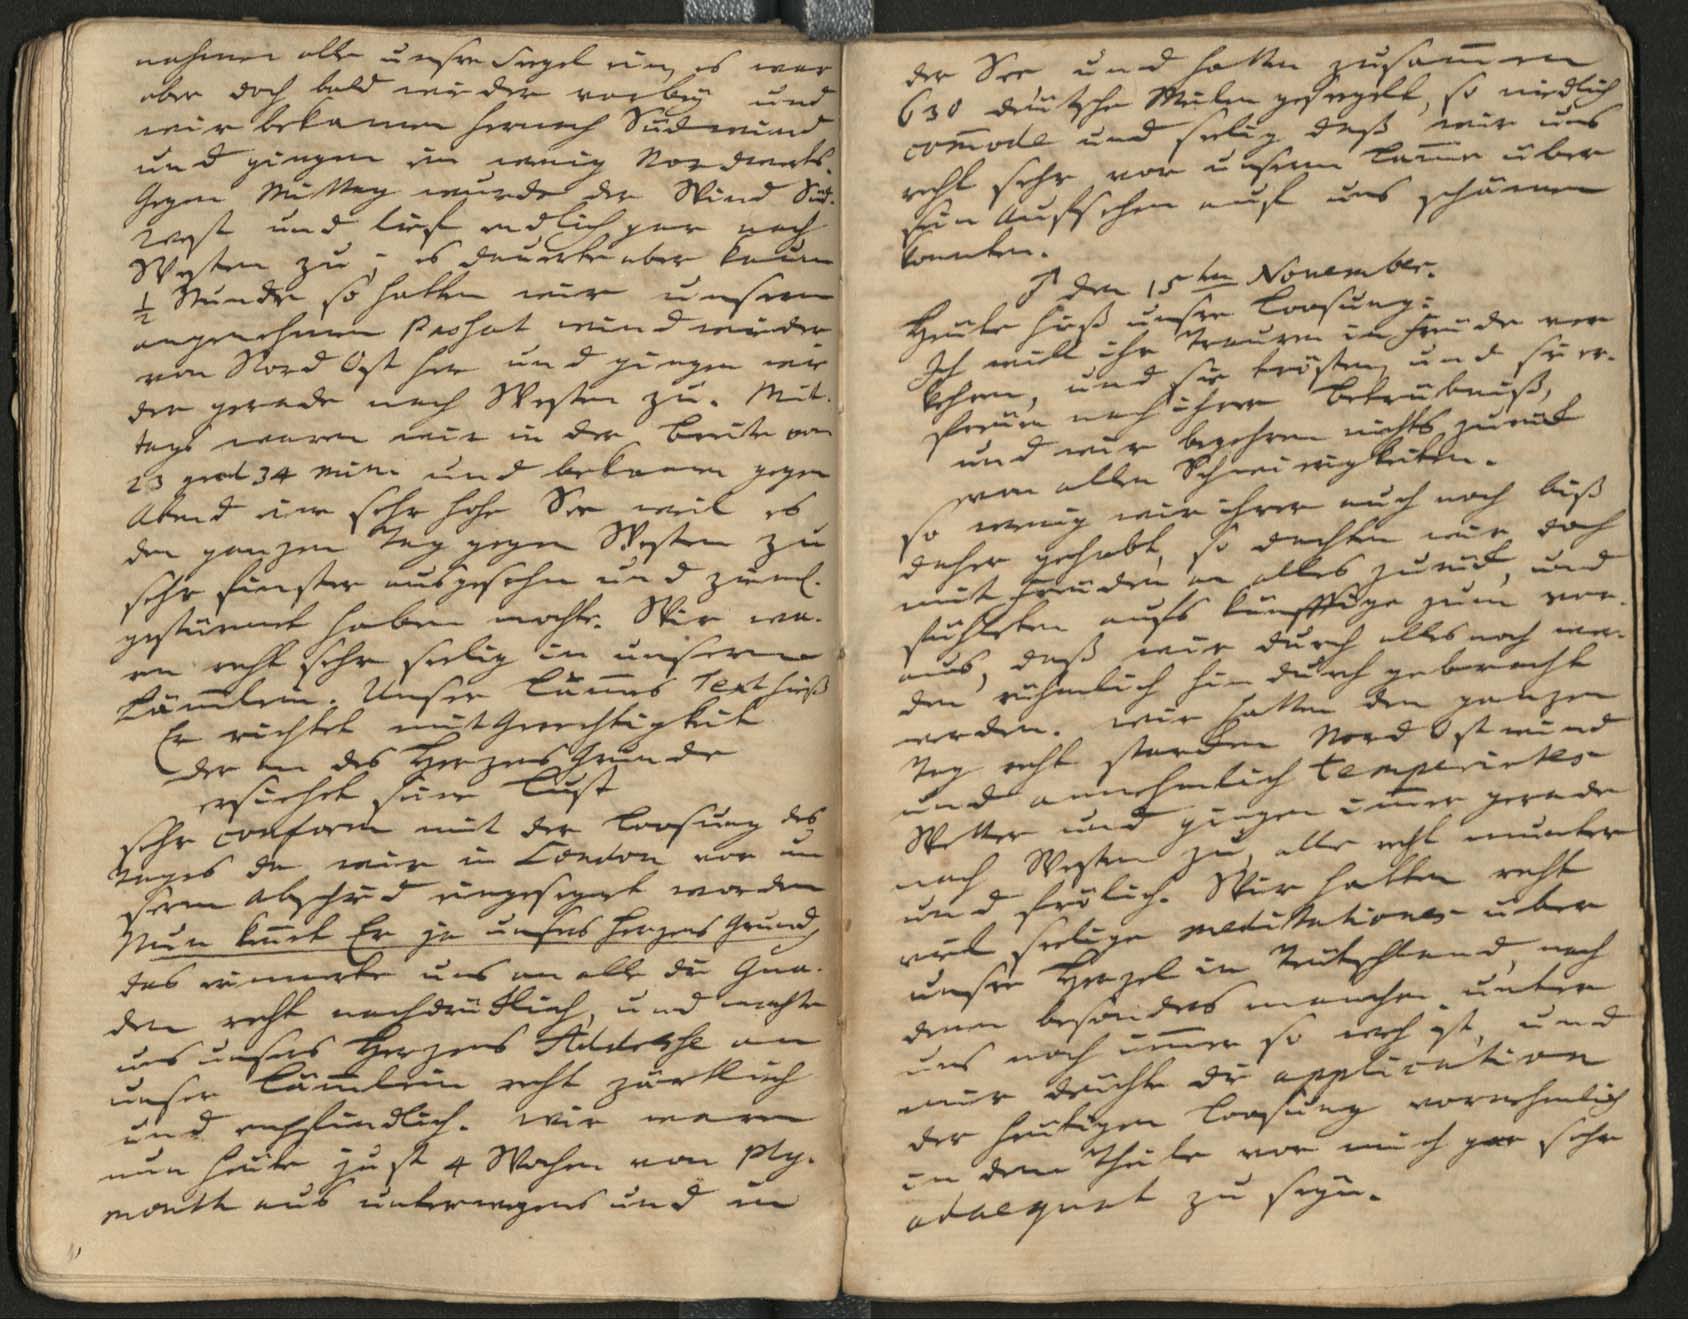 nahmen alle unsre Segel ein, es war
aber doch bald wieder vorbey und
wir bekamen hernach Südwind
und giengen ein wenig Nordwerts.
Gegen Mittag wurde der Wind Süd-
West und lief endlich gar nach
Westen zu; es dauerte aber kaum
½ Stunde so hatten wir unsern
angenehmen Paßat wind wieder
von Nord Ost her und giengen wie
der gerade nach Westen zu. Mit-
tags waren wir in der Breite von
23 grad 34 min. und bekamen gegen
Abend eine sehr hohe See weil es
den ganzen Tag gegen Westen zu
sehr finster ausgesehn und zieml.
gestürmt haben mochte. Wir wa-
ren recht sehr seelig in unserm
Lämlein. Unser Lamms Text hieß
Er richtet mit Gerechtigkeit
der an des Herzens Grunde
ersiehet seine Lust
sehr conform mit der Loosung des
Tages da wir in London vor un
serm Abschied eingesegnet worden
Nun kennt Er ja unsers Herzens Grund,
das erinnerte uns an alle die Gna-
den recht nachdrücklich, und machte
uns unsers Herzens Addresse an
unser Lämlein recht zärtlich
und empfindlich. Wir waren
nun heute just 4 Wochen von Ply-
mouth aus unterwegens und in
der See und hatten zusammen
630 deutsche Meilen gesegelt, so niedlich
commode und seelig daß wir uns
recht sehr vor unserm Lamme über
sein Aufsehen auf uns schämen
konnten.
♂ den 15ten November.
Heute hieß unsre Loosung:
Ich will ihr Trauren in Freude ver
kehren, und sie trösten, und sie er-
freuen nach ihrer Betrübniß,
und wir begehren nichts zurück
von allen Schwierigkeiten.
So wenig wir ihrer auch noch biß
daher gehabt, so dachten wir doch
mit Freuden an alles zurück, und
fühlten aufs künfftige zum vor-
aus, daß wir durch alles noch wer-
den rühmlich hindurch gebracht
werden. Wir hatten den ganzen
Tag recht starcken Nord Ost wind
und annehmlich temperirtes
Wetter und giengen immer gerade
nach Westen zu, alle recht munter
und frölich. Wir hatten recht
viel seelige meditationes über
unsre Herzel in Teutschland, nach
denen besonders manchen unter
uns noch immer so weh ist, und
mir deuchte die application
der heutigen Loosung vornehmlich
in dem Theile vor mich gar sehr
adaequat zu seyn.